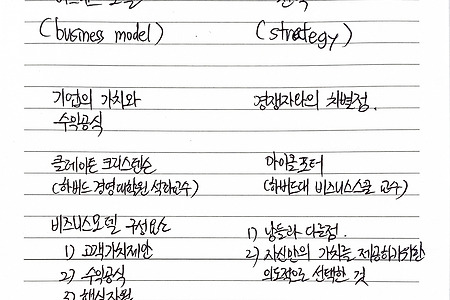 (business model)
(strategy)
기업의 가치와
수익공식
경쟁자와의 차별점.
클레이튼 크리스텐슨
(하버드 경영대학원 석좌교수)
마이클포터
(하버드대 비즈니스스쿨 교수)
비즈니스모델 구성요소
1) 고객가치제안
2) 수익공식
3) 핵심자원
1) 남들과 다른점.
2) 자신만의 가치를 제공하기위한
의도적으로 선택한 것